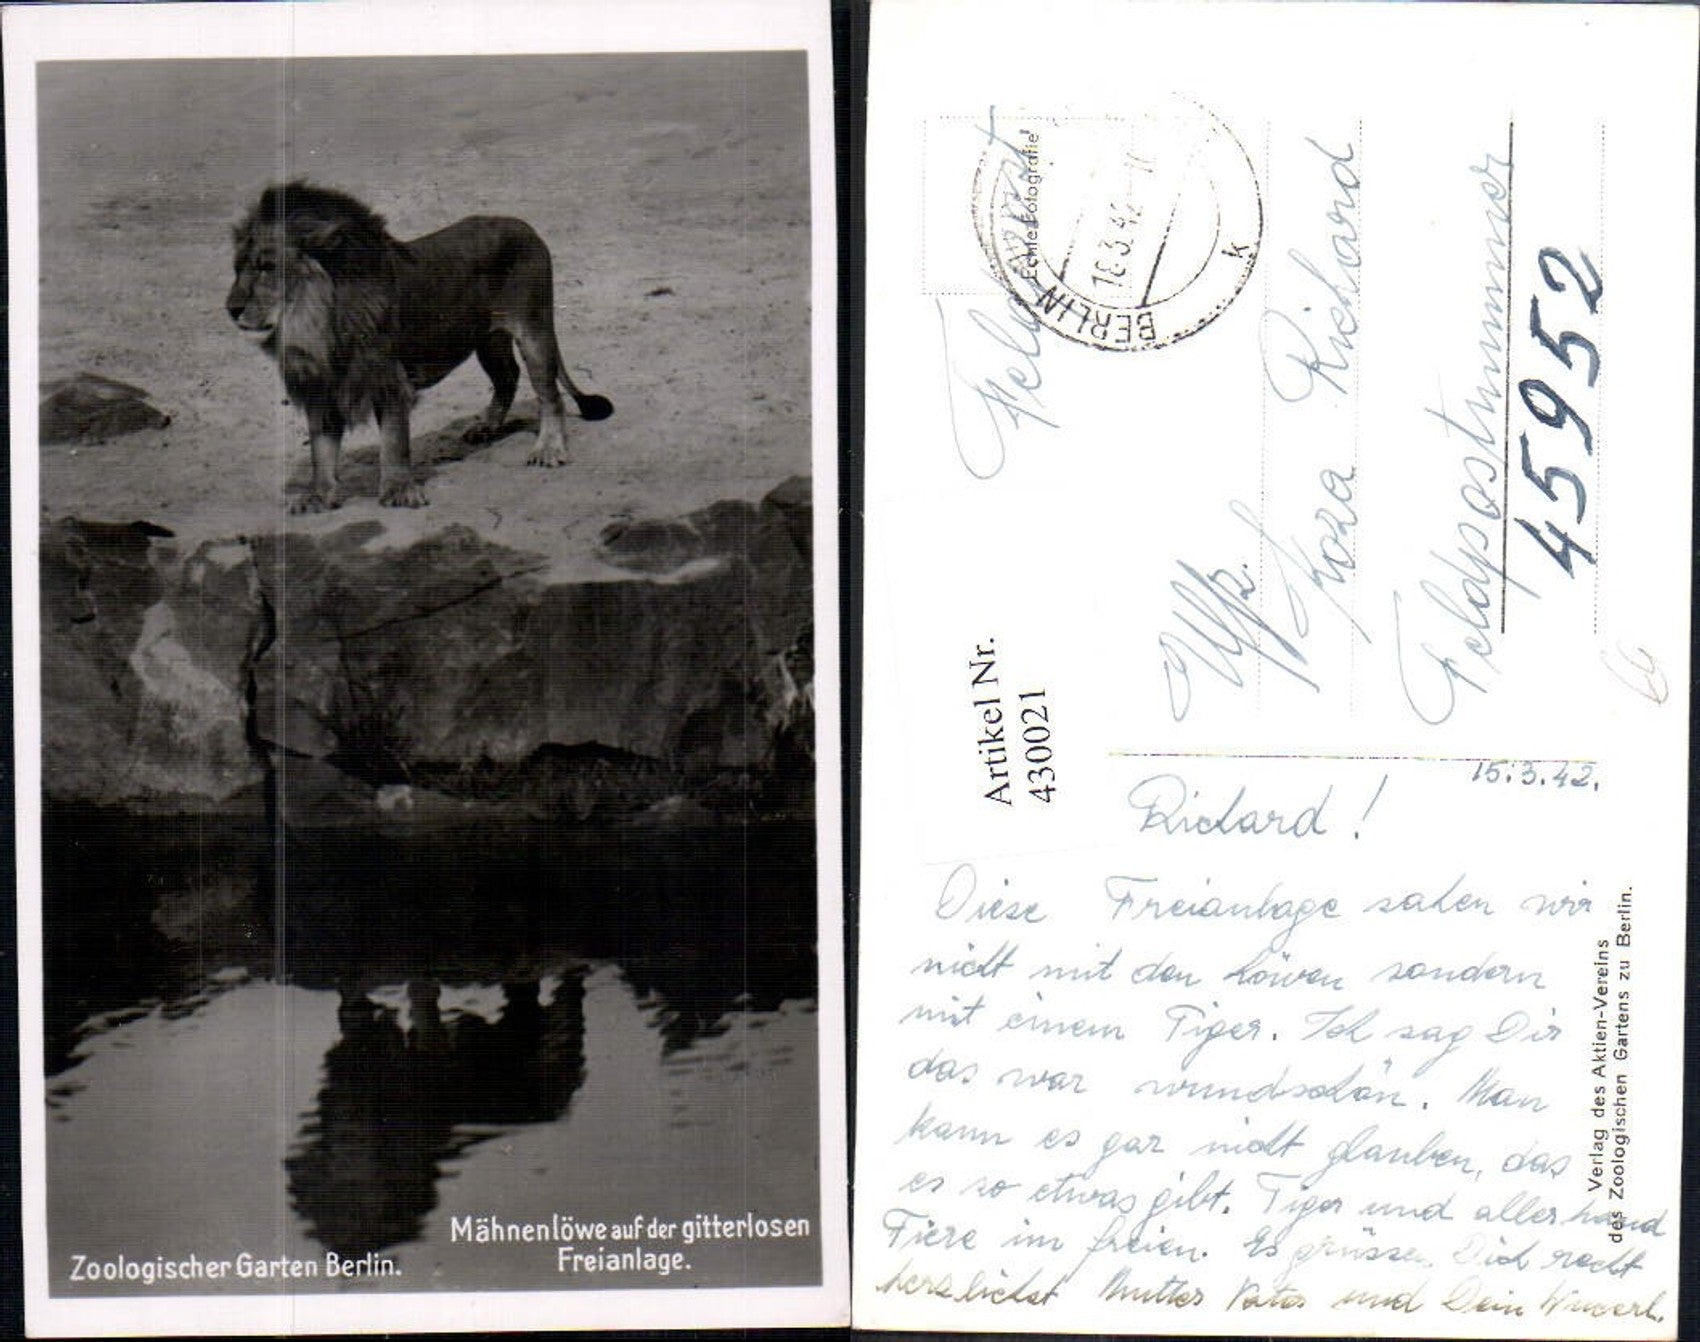 Zoologischer Garten Berlin.
Mähnenlöwe auf der gitterlosen
Freianlage.
Feldpost
Echte Fotografie
BERLIN
k
Uffz.
Richard
Feldpostnummer
45952
Artikel Nr.
430021
15.3.42.
Richard!
Diese Freianlage sahen wir
nicht mit den Löwen sondern
mit einem Tiger. Ich sag Dir
das war wundschön. Man
kann es gar nicht glauben, das
es so etwas gibt. Tiger und allerhand
Tiere im freien. Es grüssen Dich recht
herzlichst Mutter Vater und Dein
Verlag des Aktien-Vereins
des Zoologischen Gartens zu Berlin.